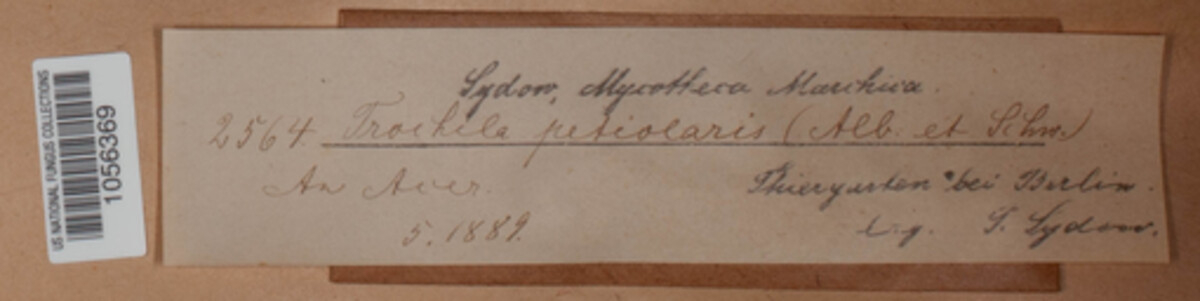 US NATIONAL FUNGUS COLLECTIONS
1056369
Sydow, Mycotheca Marchica.
2564. Trochila petiolaris (Alb. et Schw.)
An Acer.
Thiergarten bei Berlin.
5. 1889.
leg. P. Sydow.